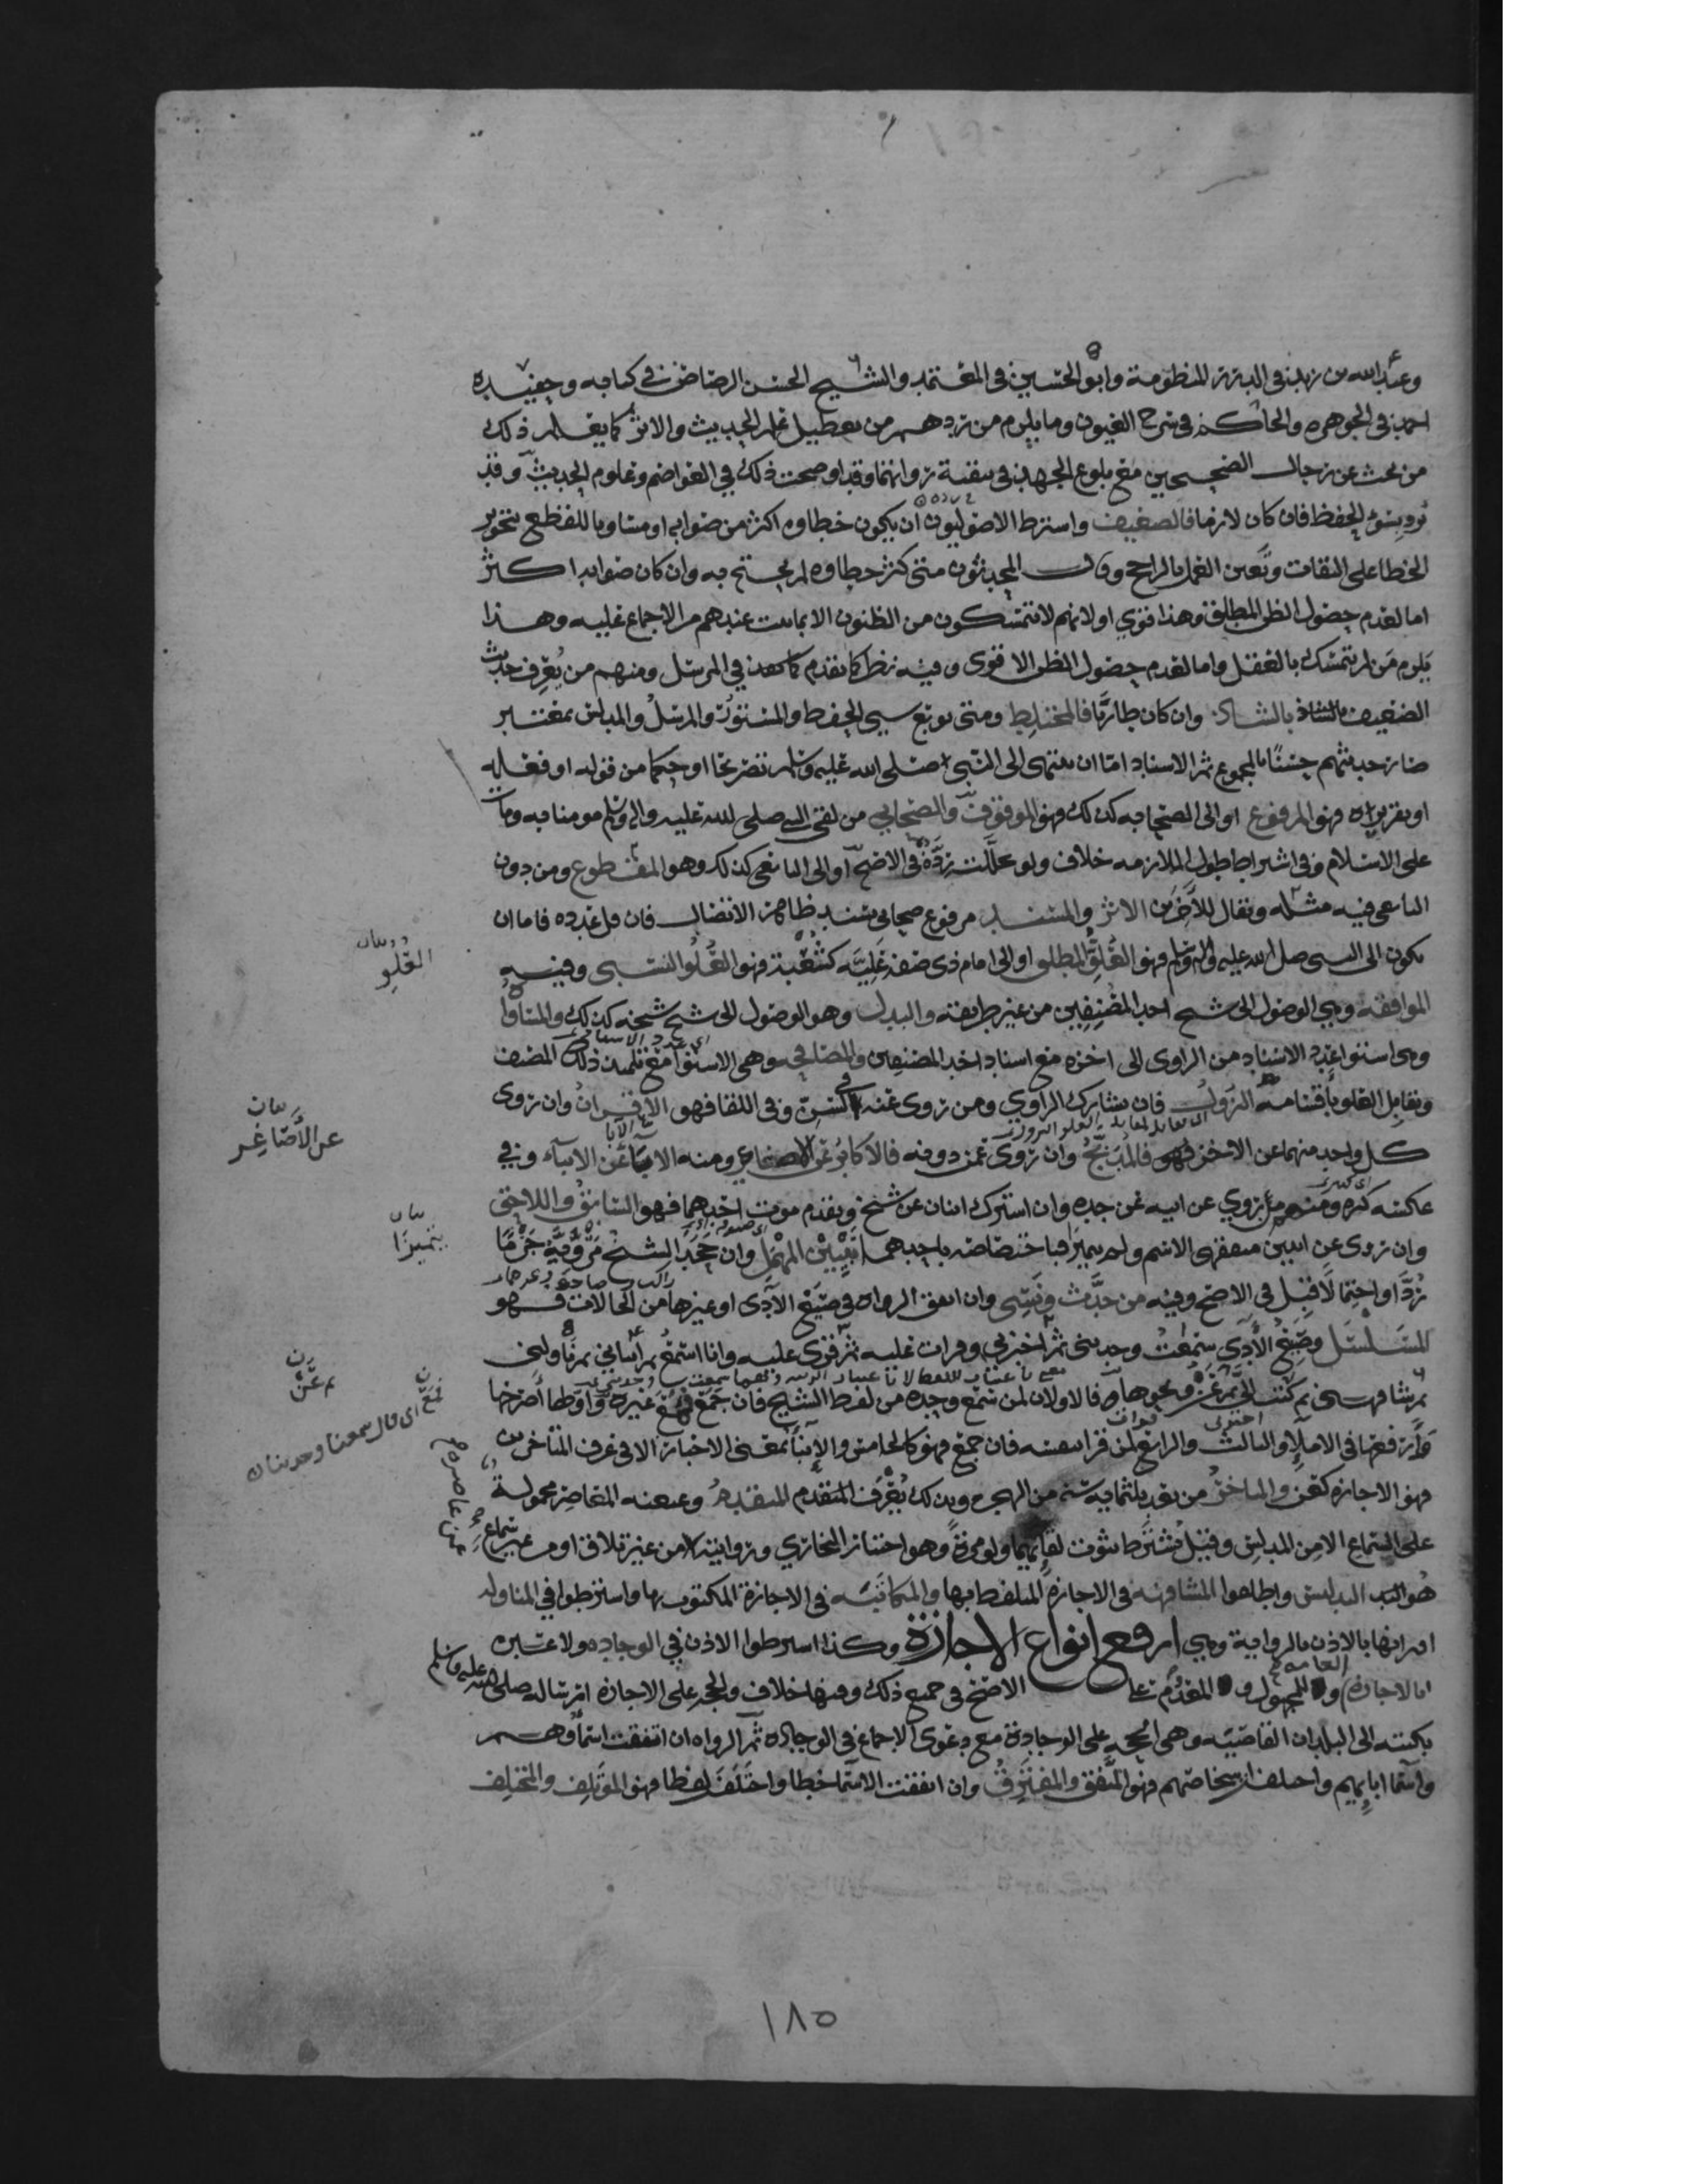 وعبد الله بن زيد في الدرر المنظومة وابو الحسين في المعتمد والشيخ الحسن الرصاص في كتابه وحفيده
احمد في الجوهره والحاكم في شرح العيون وما يلزم من ردهم من تعطيل علم الحديث والاثر كما يعلم ذلك
من بحث عن رجال الصحيحين مع بلوغ الجهد في تنقية رواتهما وقد اوضحت ذلك في العواصم وعلوم الحديث وقد
يرد بسوء الحفظ فان كان لازما فالضعيف واشترط الاصوليون ان يكون خطاوه اكثر من صوابه او مساويا للقطع بتجويز
الخطا على الثقات وتعين العمل بالراجح وقال المحدثون متى كثر خطاوه لم يحتج به وان كان صوابه اكثر
اما لعدم حصول الظن المطلق وهذا قوي او لانهم لا يتمسكون من الظنون الا بما ثبت عندهم من الاجماع عليه وهذا
يلزم من لم يتمسك بالعقل واما لعدم حصول الظن الاقوى وفيه نظر كما تقدم في المرسل ومنهم من يعرف حديث
الضعيف بالشاذ وان كان طاريا فالمختلط ومتى توبع سيي الحفظ والمستور والمرسل والمدلس بمعتبر
صار حديثهم حسنا بالمجموع ثم الاسناد اما ان ينتهى الى النبي صلى الله عليه وسلم تصريحا او حكما من قوله او فعله
او تقريره فهو المرفوع او الى الصحابه كذلك فهو الموقوف والصحابي من لقي النبي صلى الله عليه واله وسلم مومنا به ومات
على الاسلام وفي اشتراط طول الملازمه خلاف ولو تخللت رده في الاصح او الى التابعي كذلك وهو المقطوع ومن دون
التابعي فيه مثله ويقال للاخيرين الاثر والمسند مرفوع صحابي بسند ظاهره الاتصال فان قل عدده فاما ان
يكون الى النبي صلى الله عليه واله وسلم فهو العلو المطلق او الى امام ذي صفة عليه كشعبة فهو العلو النسبى وفيه
الموافقه وهي الوصول الى شيخ احد المصنفين من غير طريقته والبدل وهو الوصول الى شيخ شيخه كذلك والمساواه
وهى استوا عدد الاسناد من الراوى الى اخره مع اسناد احد المصنفين والمصافحه وهى الاستوا مع تلميذ ذلك المصنف
ويقابل العلو باقسامه النزول فان يشارك الراوي ومن روى عنه في السن وفي اللقا فهو الاقران وان روى
كل واحد منهما عن الاخر فالمدبج وان روى عمن دونه فالاكابر عن الاصاغر ومنه الابا عن الابناء وفي
عكسه كثره ومنهم من يروي عن ابيه عن جده وان اشترك اثنان عن شيخ وتقدم موت احدهما فهو السابق واللاحق
وان روى عن اثنين متفقي الاسم ولم يتميزا فباختصاصه باحدهما يتبين المهمل وان جحد الشيخ مرويه جزما
رد او احتمالا قبل في الاصح وفيه من حدث ونسي وان اتفق الرواه في صيغ الادى او غيرها من الحالات فهو
المسلسل وصيغ الادى سمعت وحدثنى ثم اخبرني وقرات عليه ثم قرى عليه وانا اسمع ثم انباني ثم ناولنى
ثم شافهنى ثم كتب الي ثم عن ونحوها فالاولان لمن سمع وحده من لفظ الشيخ فان جمع فمع غيره واولها اصرحها
وارفعها في الاملاء والثالث والرابع لمن قرا بنفسه فان جمع فهو كالخامس والانباء بمعنى الاخبار الا في عرف المتاخرين
فهو للاجازه كعن والمتاخر من بعد ثلثمايه سنه من الهجره وبذلك يعرف المتقدم وعنعنه المعاصر محمولة
على السماع الا من المدلس وقيل يشترط ثبوت لقائهما ولو مرة وهو اختيار البخاري وروايته من غير تلاق او من غير سماع
هو التدليس واطلقوا المشافهه في الاجازه المتلفظ بها والمكاتبه في الاجازة المكتوب بها واشترطوا في المناوله
اقترانها بالاذن بالرواية وهي ارفع انواع الاجازة وكذا اشترطوا الاذن في الوجاده ولا عبره
بالاجازه العامه وللمجهول والمعدوم على الاصح في جميع ذلك وفيها خلاف والحجه على الاجازه ارساله صلى الله عليه وسلم
بكتبه الى البلدان القاصيه وهى الحجه على الوجادة مع دعوى الاجماع في الوجاده ثم الرواه ان اتفقت اسماوهم
واسما ابائهم واختلف اشخاصهم فهو المتفق والمفترق وان اتفقت الاسما خطا واختلف لفظا فهو الموتلف والمختلف
بيان
العلو
بيان
عن الاصاغر
بيان
يتميزا
ثم عن
اى قال سمعنا وحدثنا
١٨٥